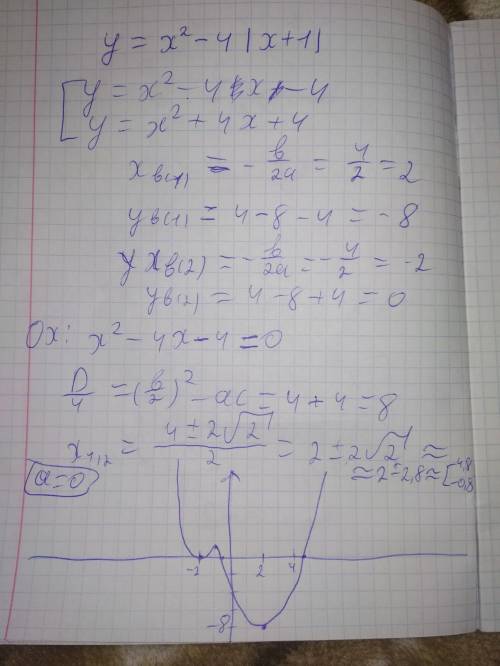 y = x² - 4|x+1|
[ y = x² - 4x - 4
y = x² + 4x + 4
x в(1) = - в/2a = 4/2 = 2
y в(1) = 4 - 8 - 4 = -8
x в(2) = - в/2a = - 4/2 = -2
y в(2) = 4 - 8 + 4 = 0
Ox: x² - 4x - 4 = 0
D/4 = (в/2)² - ac = 4 + 4 = 8
x₁,₂ = (4 ± 2√2)/2 = 2 ± 2√2 ≈
≈ 2 ± 2,8 ≈ [ 4,8
-0,8
a = 0
-2 2 4
-8